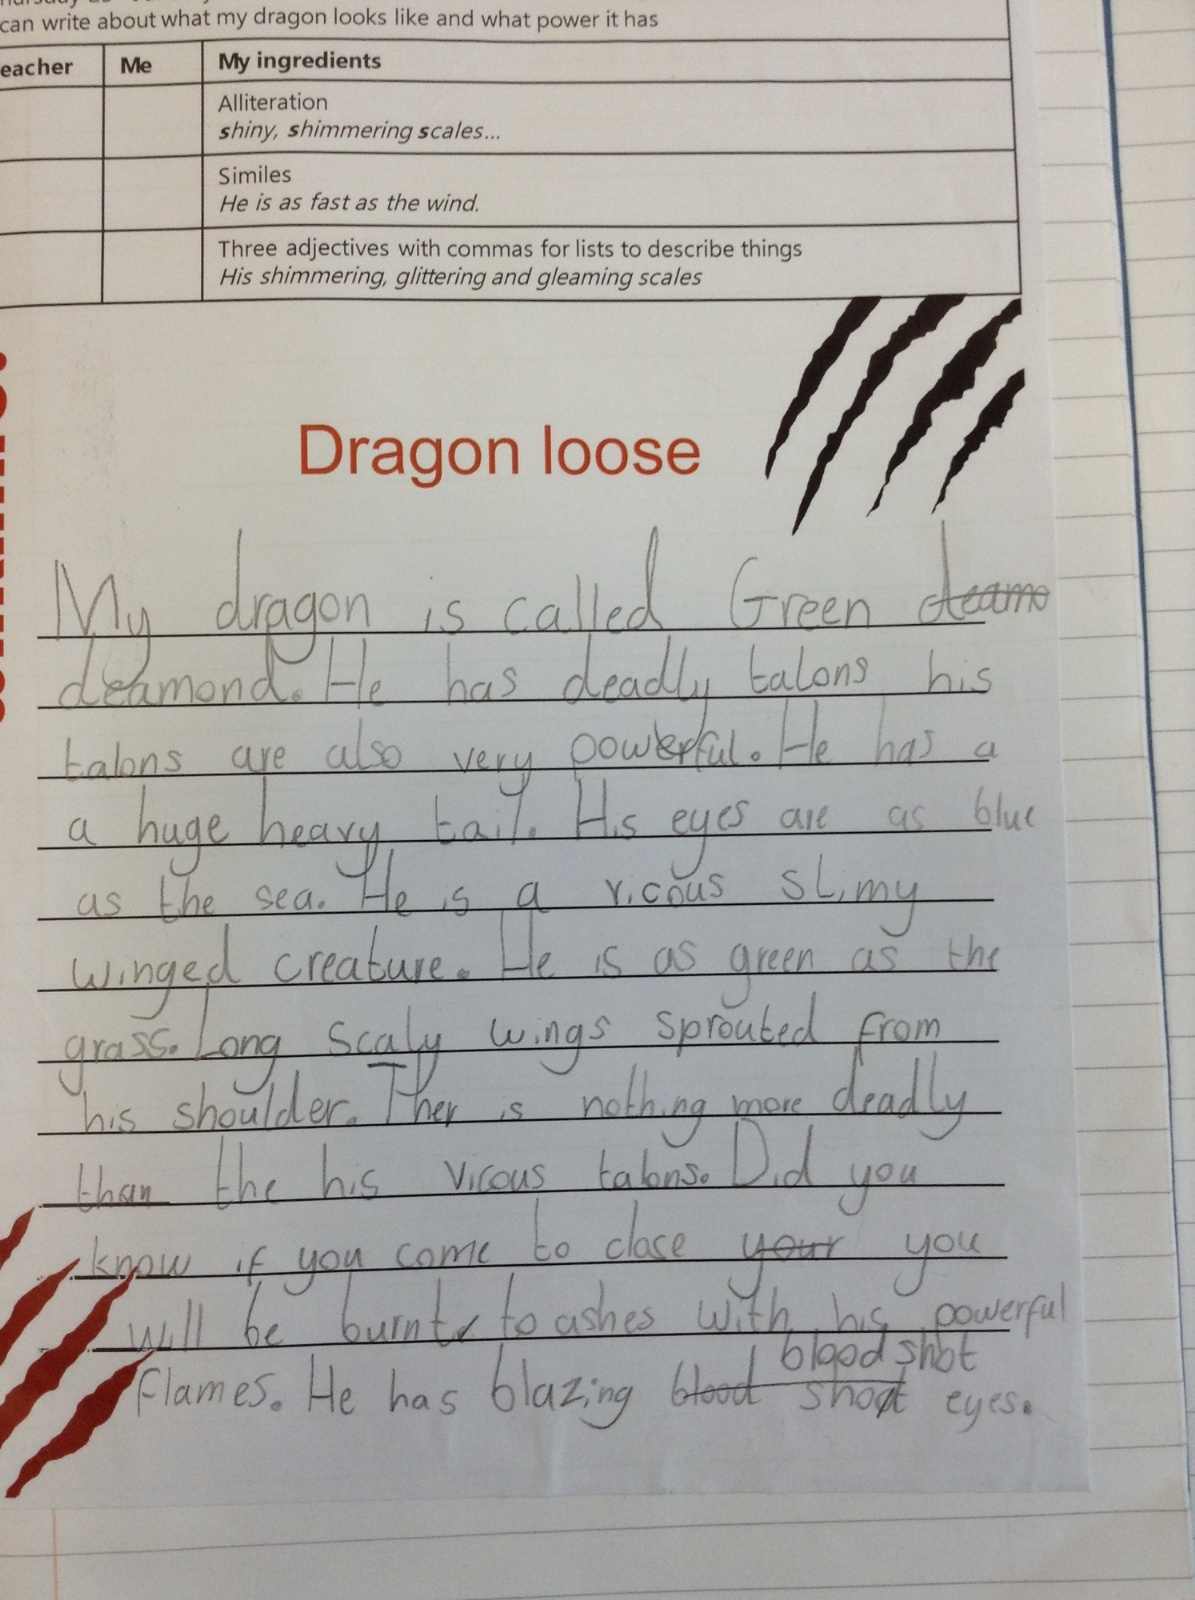 can write about what my dragon looks like and what power it has
eacher Me My ingredients
Alliteration
shiny, shimmering scales...
Similes
He is as fast as the wind.
Three adjectives with commas for lists to describe things
His shimmering, glittering and gleaming scales
Dragon loose
My dragon is called Green deamo
deamond. He has deadly talons his
talons are also very powerful. He has a
a huge heavy tail. His eyes are as blue
as the sea. He is a vicous slimy
winged creature. He is as green as the
grass. Long scaly wings sprouted from
his shoulder. Ther is nothing more deadly
than the his vicous talons. Did you
know if you come to close your you
will be burnt to ashes with his powerful
blood shot
flames. He has blazing blood shoot eyes.